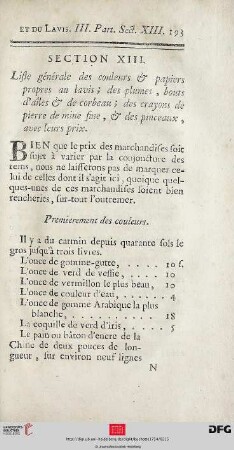 ET DU LAVIS. III. Part. Sect. XIII. 193
SECTION XIII.
Liste générale des couleurs & papiers
propres au lavis; des plumes, bouts
d'aîles & de corbeau; des crayons de
pierre de mine fine, & des pinceaux,
avec leurs prix.
BIEN que le prix des marchandises soit
sujet à varier par la conjoncture des
tems, nous ne laisserons pas de marquer ce-
lui de celles dont il s'agit ici, quoique quel-
ques-unes de ces marchandises soient bien
rencheries, sur-tout l'outremer.
Premierement des couleurs.
Il y a du carmin depuis quarante sols le
gros jusqu'à trois livres.
L'once de gomme-gutte, . . . 10 s.
L'once de verd de vessie, . . . 10
L'once de vermillon le plus beau, . 10
L'once de couleur d'eau, . . . . 4
L'once de gomme Arabique la plus
blanche, . . . . . . . . 18
La coquille de verd d'iris, . . . 5
Le pain ou bâton d'encre de la
Chine de deux pouces de lon-
gueur, sur environ neuf lignes
N
DFG